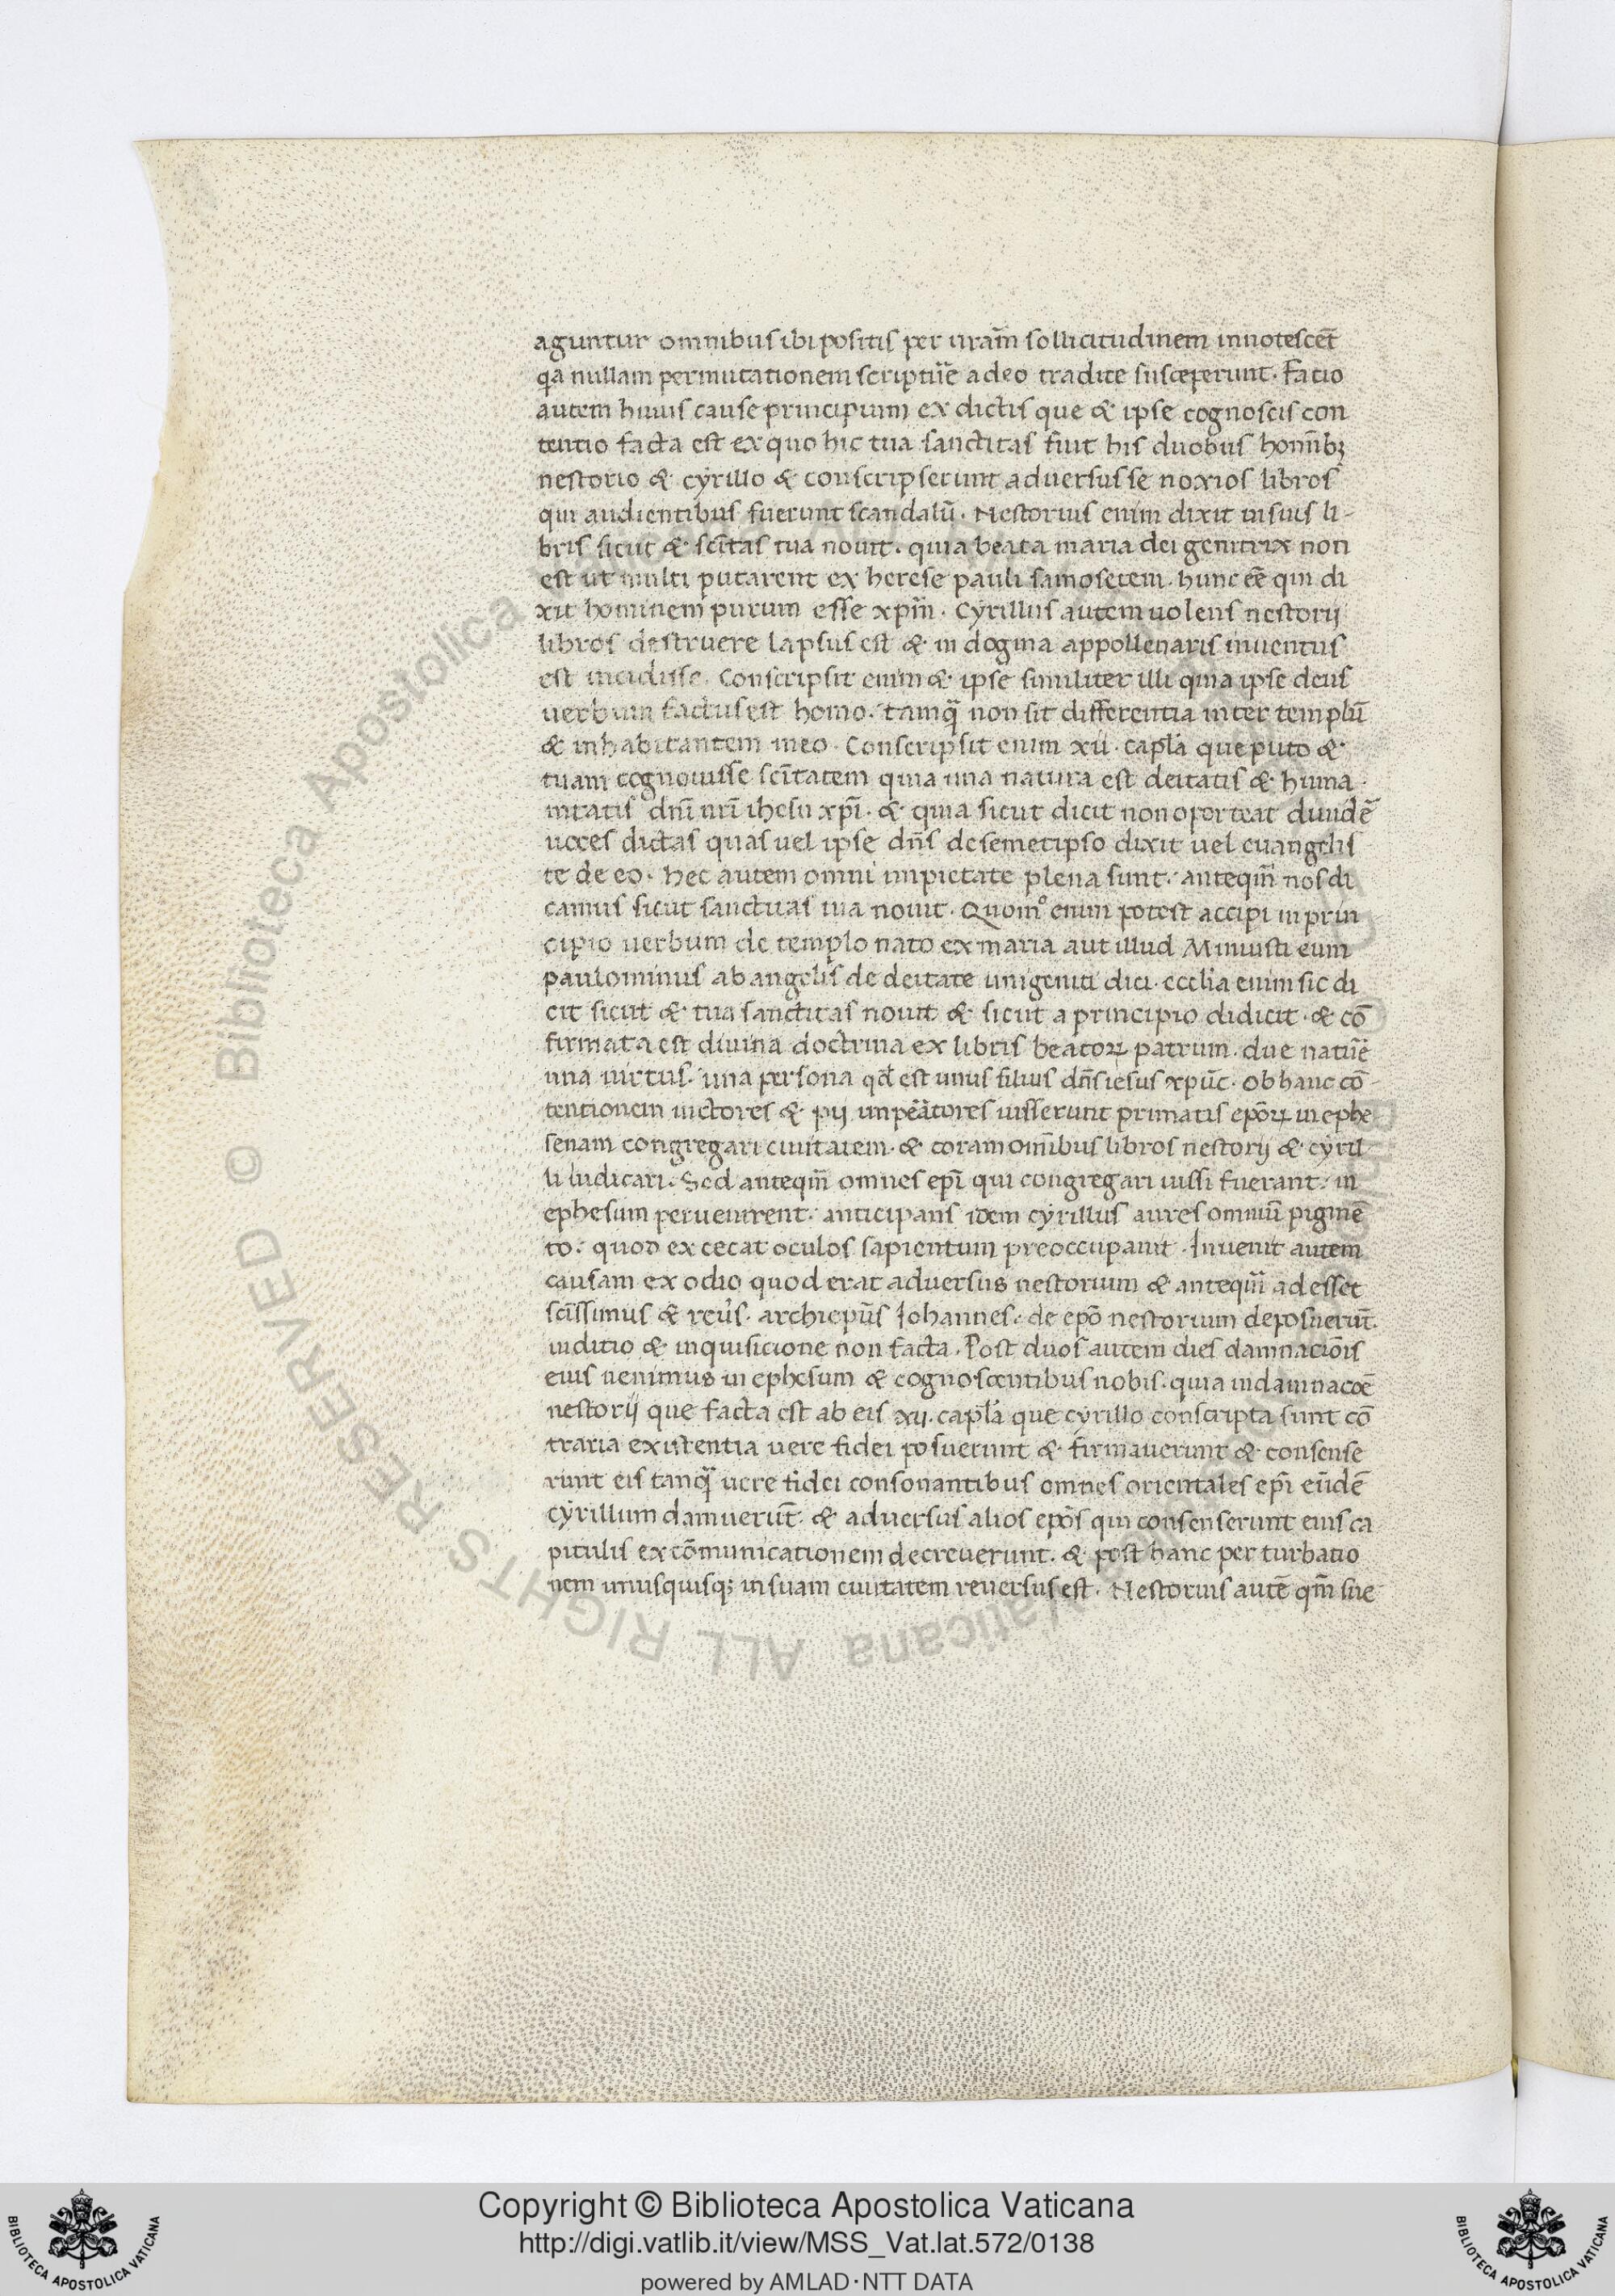 aguntur omnibus ibi positis per ur̄am sollicitudinem innotescet̄
qa nullam permutationem scriptur̄e a deo tradite susceperunt. Facio
autem huius cause principium ex dictis que & ipse cognoscis con
tentio facta est ex quo hic tua sanctitas fuit his duobus homīnbꝫ
nestorio & cyrillo & conscripserunt adversus se noxios libros
qui audientibus fuerunt scandalū. Nestorius enim dixit in suis li-
bris sicut & scītas tua novit. quia beata maria dei genitrix non
est ut multi putarent ex herese pauli samosetem. hunc eē qui di
xit hominem purum esse xpm̄. Cyrillus autem uolens nestorij
libros destruere lapsus est & in dogma appollenaris inventus
est incidisse. Conscripsit enim & ipse similiter illi quia ipse deus
uerbum factus est homo. tamqā non sit differentia inter templū
& inhabitantem ineo. Conscripsit enim xii. capl̄a que puto &
tuam cognovisse scītatem quia una natura est deitatis & huma
nitatis dn̄i nr̄i ihesu xpī. & quia sicut dicit non oporteat dividē
uoces dictas quas uel ipse dn̄s de semetipso dixit uel euangelis
te de eo. hec autem omni impietate plena sunt. anteqm̄ nos di
camus sicut sanctitas tua novit. Quomº enim potest accipi in prin
cipio uerbum de templo nato ex maria aut illud Minuisti eum
paulominus ab angelis de deitate unigeniti dici. ecclia enim sic di
cit sicut & tua sanctitas novit & sicut a principio didicit. & cō
firmata est divina doctrina ex libris beatoꝝ patrum. due natur̄e
una uirtus. una persona qd̄ est unus filius dn̄s iesus xpūc. ob hanc cō-
tentionem uictores & pij imper̄atores iusserunt primatis epōꝝ in ephe
senam congregari civitatem. & coram omībus libros nestorij & cyril
li iudicari. Sed anteqm̄ omnes epī qui congregari iussi fuerant. in
ephesum pervenirent. anticipans idem cyrillus aures omniū pigmē
to. quod excecat oculos sapientum preoccupavit. Invenit autem
causam ex odio quod erat adversus nestorium & anteqm̄ adesset
scīssimus & reūs. archiepūs Iohannes. de epō nestorium deposuerūt.
inditio & inquisicione non facta. Post duos autem dies damnaciōis
eius uenimus in ephesum & cognoscentibus nobis. quia in damnacoē
nestorij que facta est ab eis xij. capl̄a que cyrillo conscripta sunt cō
traria existentia uere fidei posuerunt & firmaverunt & consense
runt eis tanqā uere fidei consonantibus omnes orientales epī eūdē
cyrillum damuerūt. & adversus alios epōs qui consenserunt eius ca
pitulis excōmunicationem decreverunt. & post hanc perturbatio
nem unusquisqꝫ in suam civitatem reversus est. Nestorius autē qm̄ sue
Biblioteca Apostolica Vaticana ALL RIGHTS RESERVED ©
Copyright © Biblioteca Apostolica Vaticana
http://digi.vatlib.it/view/MSS_Vat.lat.572/0138
powered by AMLAD·NTT DATA
BIBLIOTECA APOSTOLICA VATICANA
BIBLIOTECA APOSTOLICA VATICANA